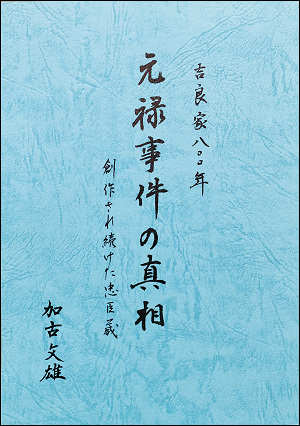 吉良家八〇〇年
元禄事件の真相
創作され続けた忠臣蔵
加古文雄